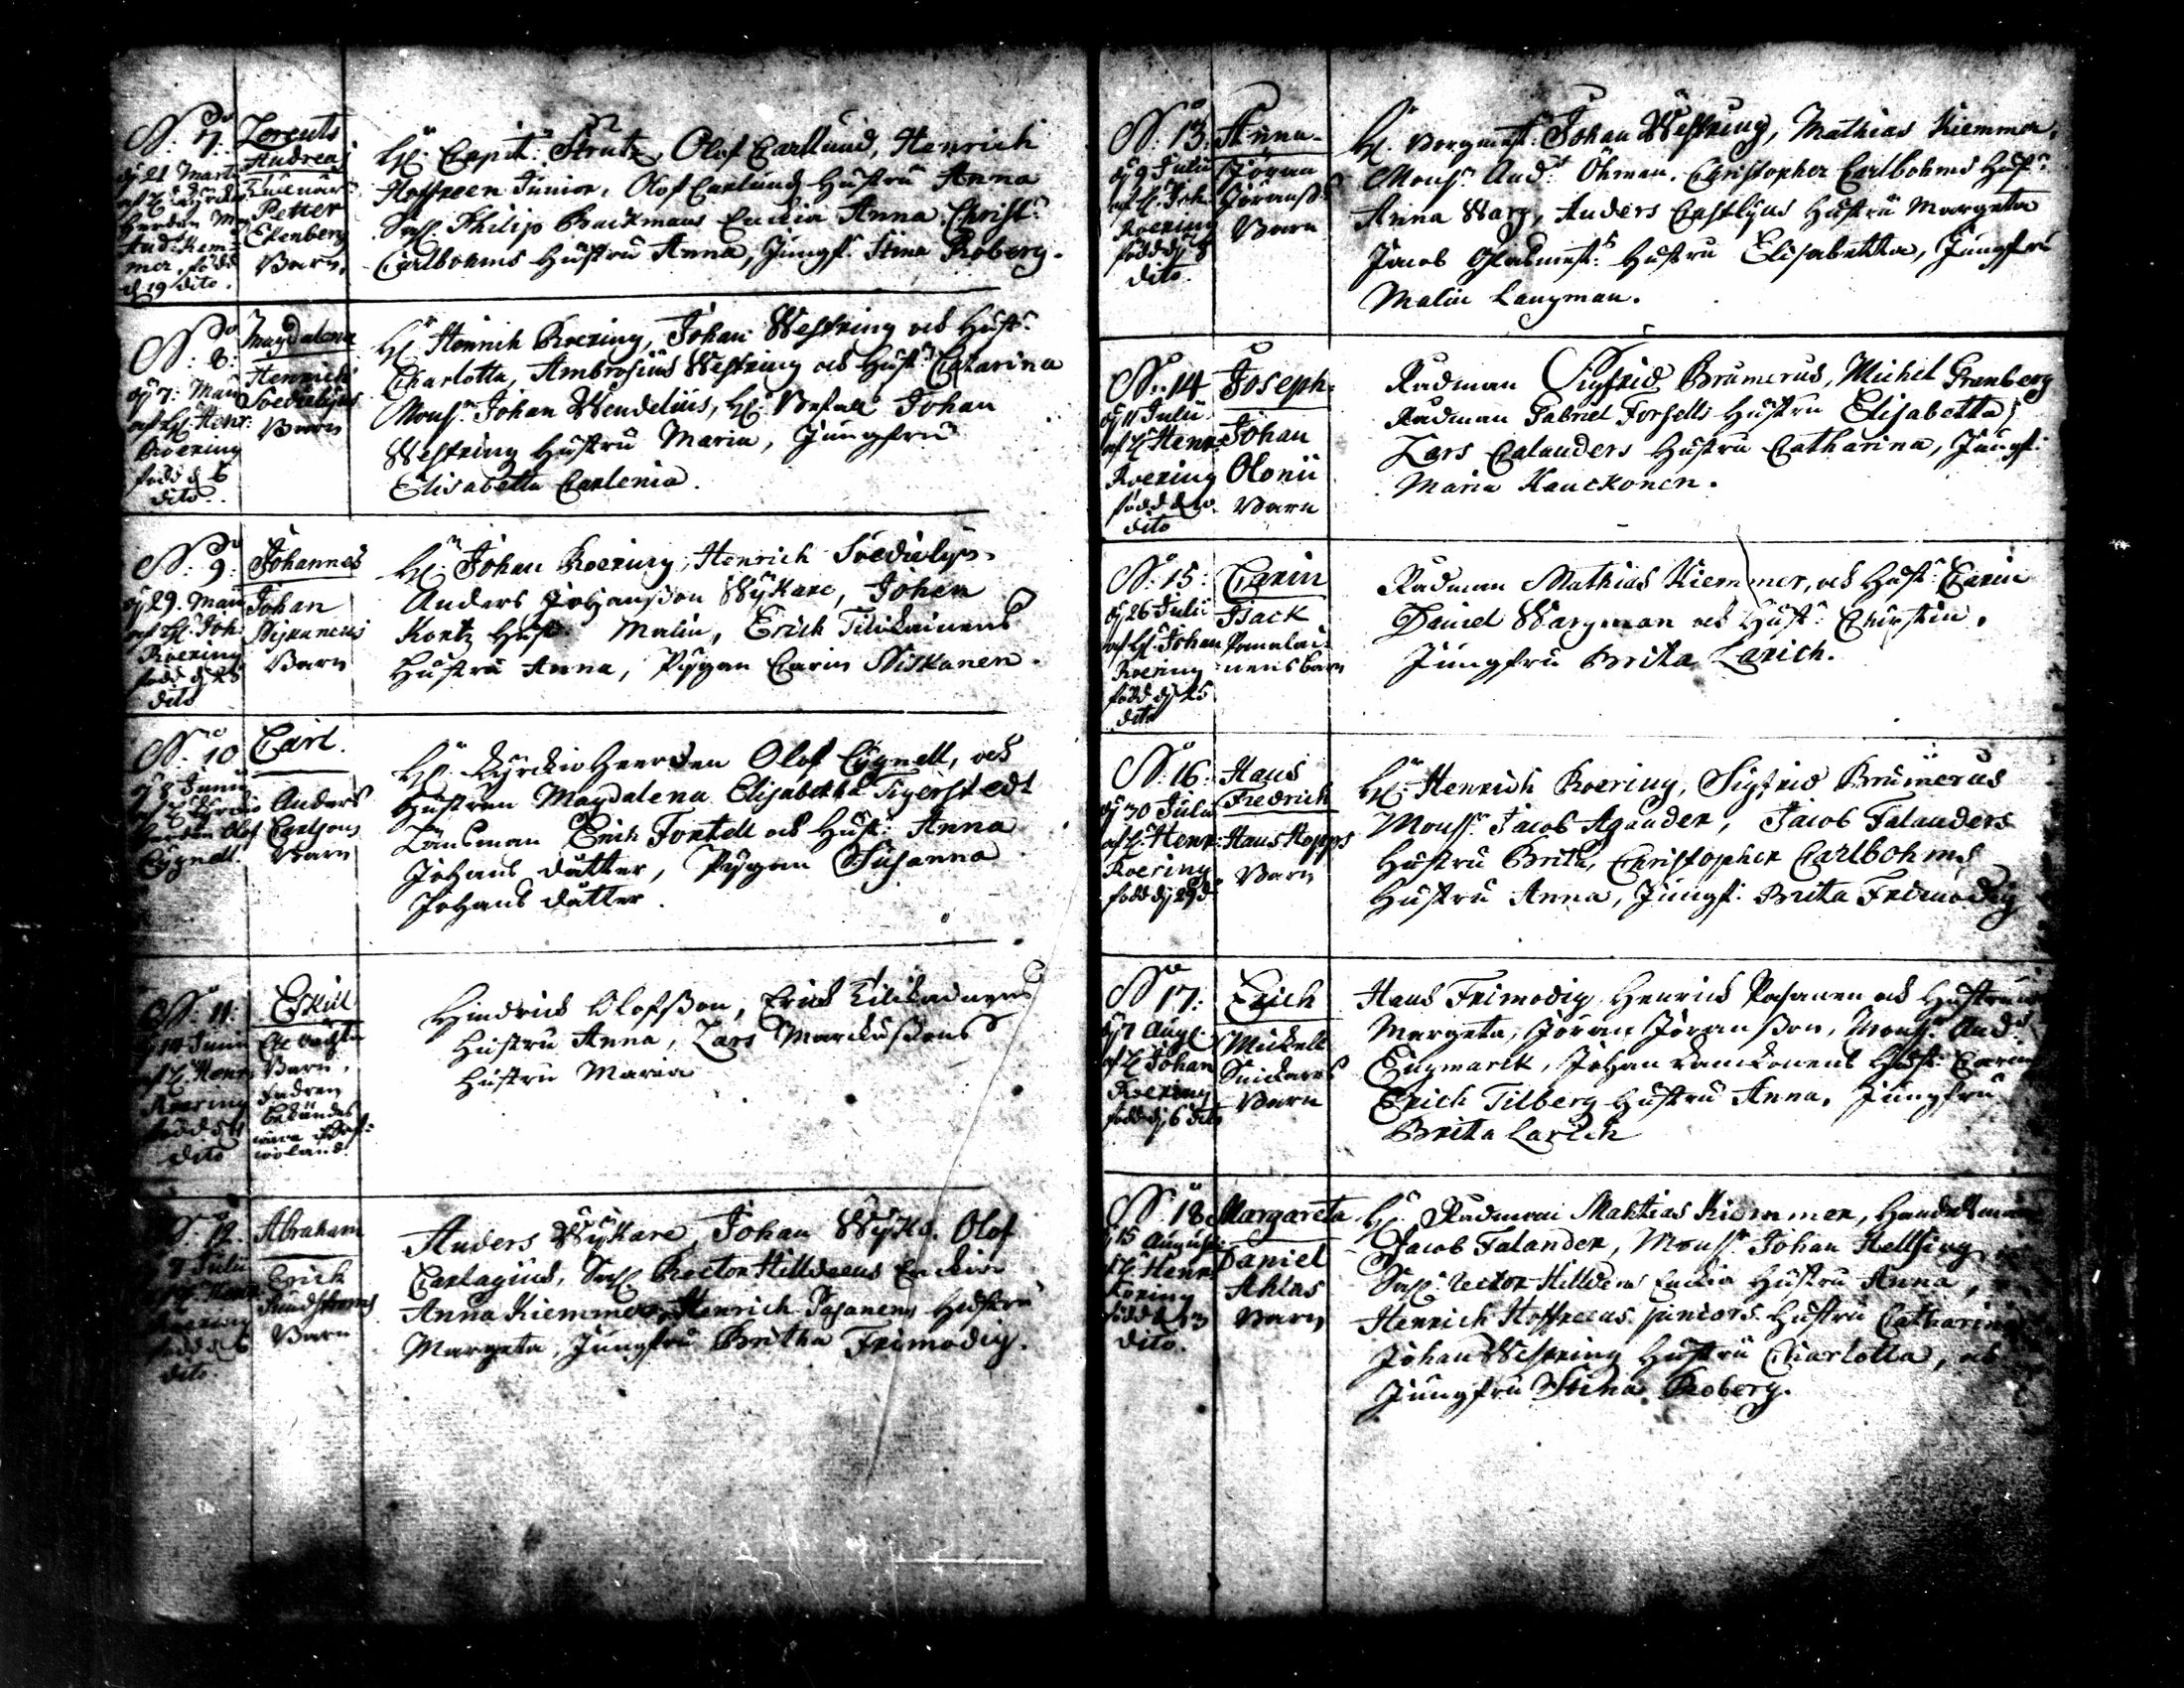 No 7:
dÿ 21 Marti
af H. Kÿrckio
Herden Mr
And: Kiem=
mer, född
d 19 dito.
Lorents
Andreas
Petter
Ekenberg
Barn.
Hr: Capit: Strutz, Olof Carlund, Henrich
Hoffreen Junior, Olof Carlunds Hustru Anna
Sal: Philip Backmans Enckia Anna, Christ:
Carlbohms Hustru Anna, Jungf: Stina Roberg.
No 8:
dÿ 7: Maii
af H: Henr:
Roering
född d 6
dito.
Magdalena
Henrich
Barn
Hr Henrich Roering, Johan Westring och Hust:
Charlotta, Ambrosius Westring och Hust: Catarina
Mons: Johan Wendelius, Hr: Johan
Westring Hustru Maria, Jungfru
Elisabetta Carlenia.
No 9:
dÿ 29. Maii
af H: Joh:
Roering
född d 28
dito
Johannes
Johan
Barn
Hr: Johan Roering, Henrich
Anders Johansson Wÿkare, Johan
Kortz Hust: Malin, Erich Tilikainens
Hustru Anna, Pigan Carin Niskanen.
No 10
dÿ 8 Junii
af H Kÿrckio
Herden Olof
Cygnell.
Carl.
Anders
Carlsons
Barn
Hr: Kÿrckio Heerden Olof Cygnell, och
Hustrun Magdalena Elisabetha Tigerstedt
Länsman Erich Fortell och Hust: Anna
Johans dåtter, Pigan Susanna
Johans dåtter.
No 11:
14 Junii
af H Henr:
Roering
född d 11
dito
Eskill
Oe ächta
Barn,
Fadren
Hindrich Olofsson, Erich Tilikainens
Hustru Anna, Lars Marcussons
Hustru Maria
No 12.
7 Julii
af H Henr:
Roering
född d 6
dito.
Abraham
Erich
Sundstroms
Barn
Anders Wÿkare, Johan Wÿka. Olof
Carlagius, Sal: Rector Hilldeens Enckia
Anna Kiemmer, Henrich Pasanens Hustru
Margeta, Jungfru Britha Frimodig.
No 13.
dÿ 9 Julii
af H. Joh:
Roering
född dÿ 8
dito.
Anna.
Jöran
Jöranss:
Barn
Hr. Borgmest: Johan Westring, Mathias Kiemmer,
Mons: And: Öhman, Christopher Carlbohms Hust:
Anna Warg, Anders Castlÿns Hustru Margeta
Jacob Glasmest: Hustru Elisabetta, Jungfru
Malin Langman.
No 14
dÿ 11 Julii
af H Henr:
Roering
född d 10
dito
Joseph.
Johan
Olonii
Barn
Radman Sigfrid Brumerus, Michel Granberg
Radman Gabriel Forsells Hustru Elisabetta,
Lars Calanders Hustru Catharina, Jungf:
Maria Kauckonen.
No 15:
dÿ 26 Julii
af H: Johan
Roering
född dÿ 25
dito
Carin
Isack
nens barn
Radman Mathias Kiemmer, och Hust: Carin
Daniel Wargman och Hust: Christin,
Jungfru Brita Larich.
No 16:
dÿ 30 Julii
af H: Henr:
Roering
född dÿ 29 d:
Hans
Fredrich
Hans Hopps
Barn
Hr: Henrich Roering, Sigfrid Brumerus
Mons: Jacob Agander, Jacob Falanders
Hustru Brita, Christopher Carlbohms
Hustru Anna, Jungf: Brita Frimodig
No 17:
dÿ 7 Aug:
af H Johan
Roering
född dÿ 6 dito
Erich
Mickell
Snickares
Barn
Hans Frimodig, Henrich Pasanen och Hustrun
Margeta, Jöran Jöransson, Mons: And:
Engmarck, Johan Hust: Carin
Erich Tilberg Hustru Anna, Jungfru
Brita Larich
No 18.
15 August:
af H: Henr:
Roering
född d 13
dito.
Margareta
Daniel
Ahlas
Barn
Hr: Radman Mathias Kiemmer, Handelsman
Jacob Falander, Mons: Johan Hellsing
Sal: Rector Hilldens Enckia Hustru Anna,
Henrich Hoffreens juniors Hustru Catharina
Johan Westring Hustru Charlotta, och
Jungfru Stina Roberg.